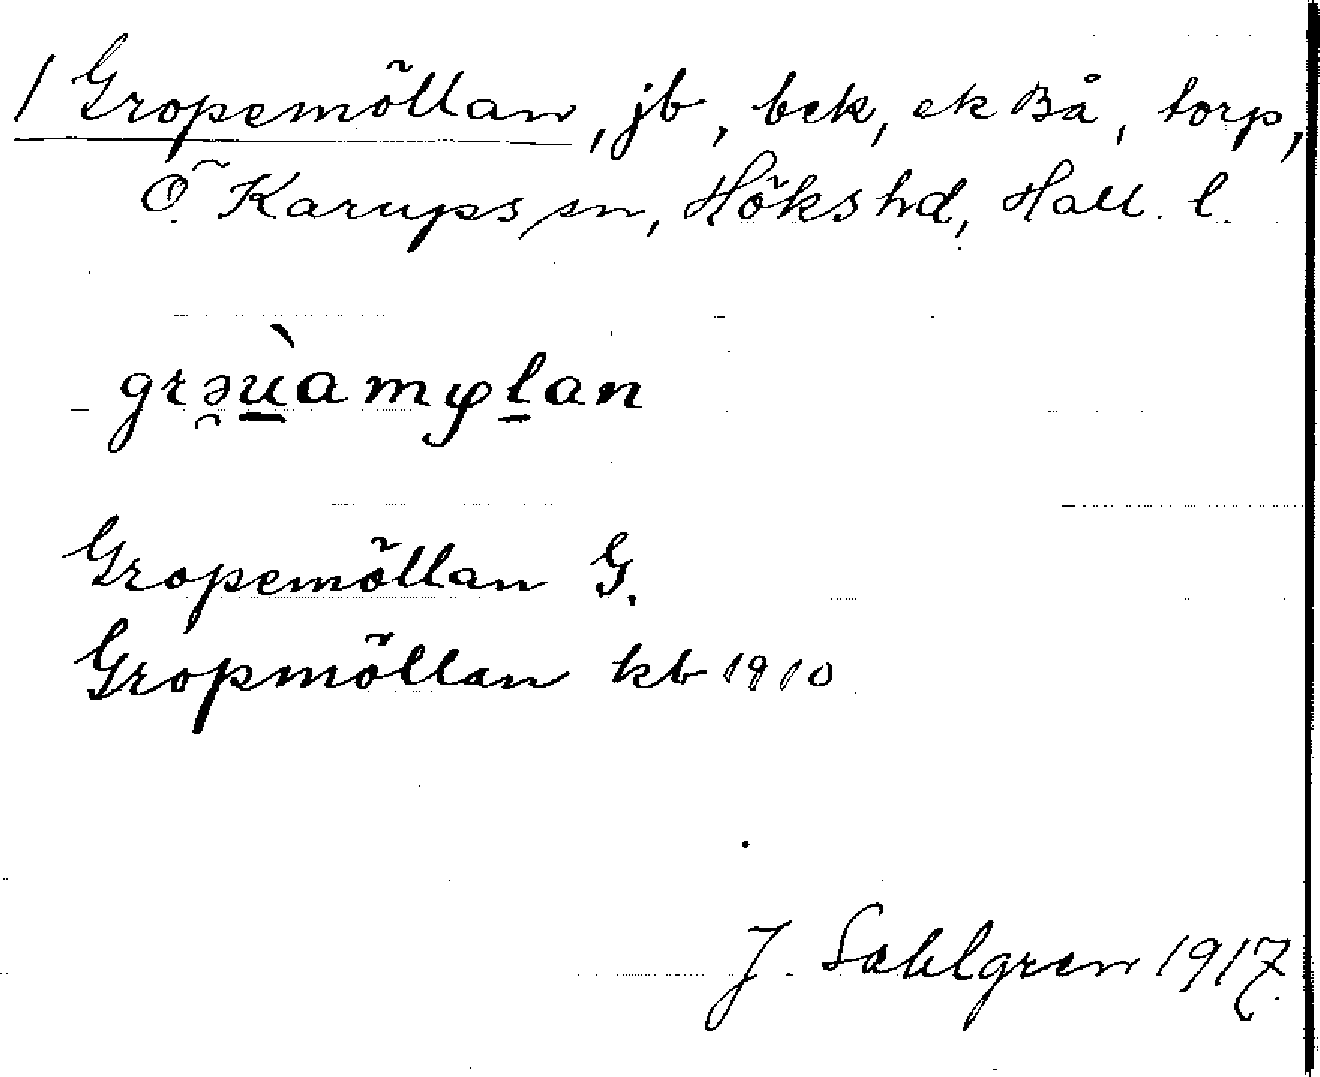 / Gropemöllan, jb, bek, ek Bå, torp,
Ö. Karups sn, Höks hd, Hall. l.
grəù̠amyl̠an
Gropemöllan G.
Gropmöllan kb 1910
J. Sahlgren 1917